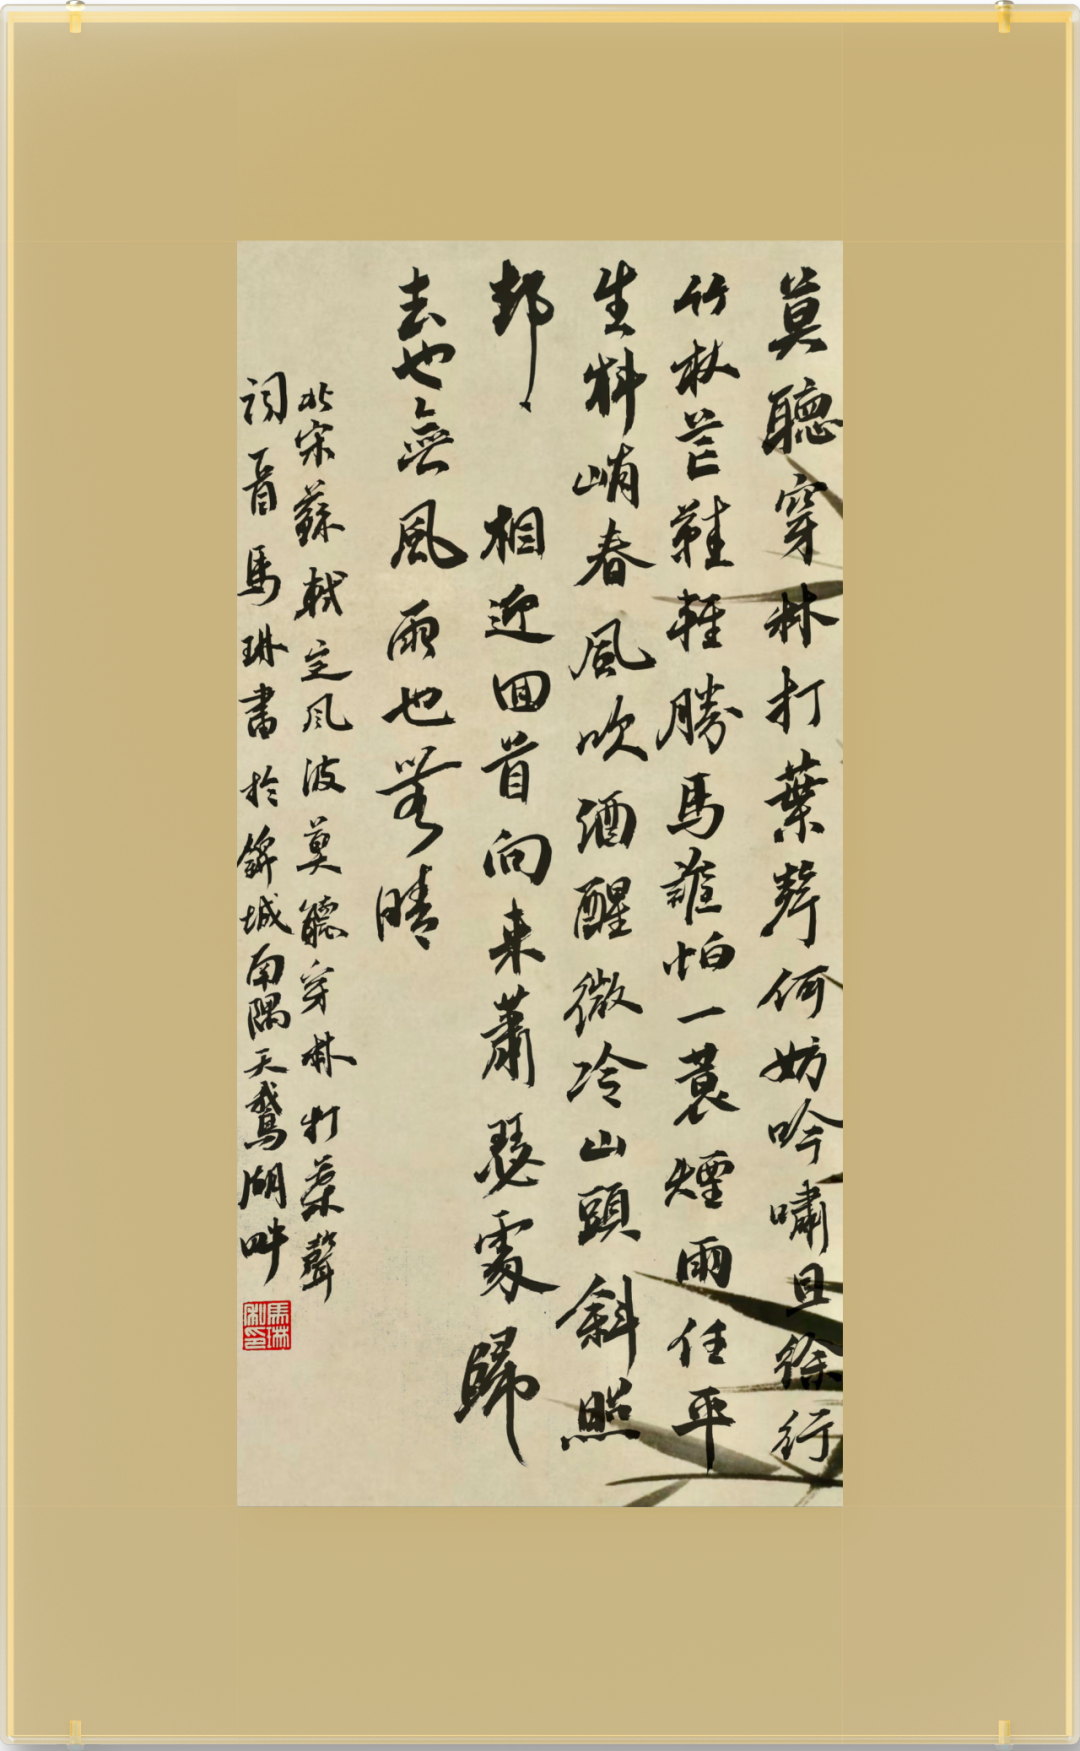 莫聽穿林打葉聲何妨吟嘯且徐行
竹杖芒鞋輕勝馬誰怕一蓑煙雨任平
生料峭春風吹酒醒微冷山頭斜照
却相迎回首向来蕭瑟處歸
去也無風雨也無晴
北宋蘇軾定风波莫聽穿林打葉聲
词一首馬琳書於錦城南隅天鵝湖畔
馬琳私印